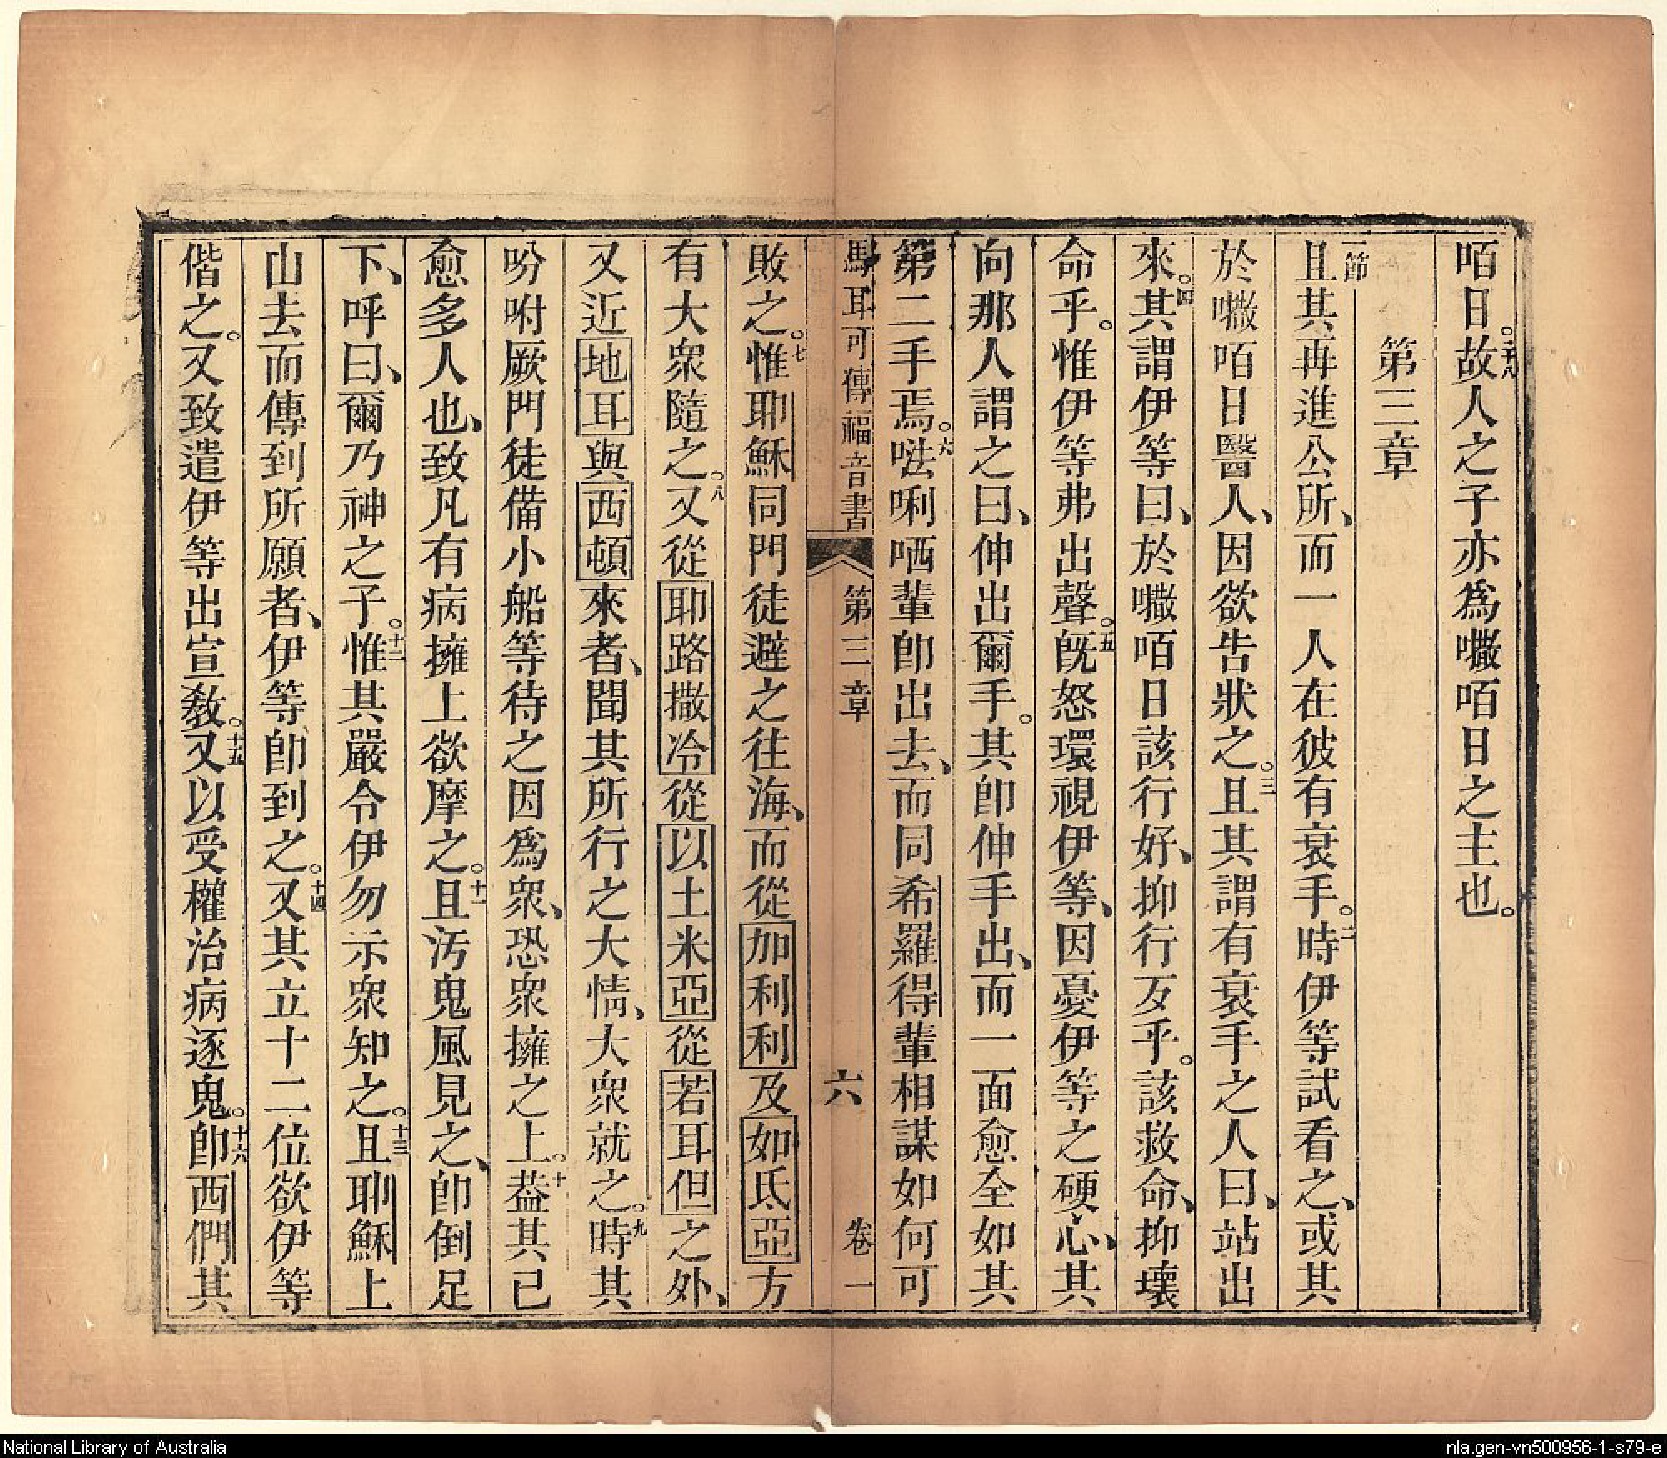 咟日。故人之子亦為𡃤咟日之主也。
第三章
一節
且其再進公所、而一人在彼有衰手。二時伊等試看之、或其
於𡃤咟日醫人、因欲告狀之。三且其謂有衰手之人曰、站出
來。四其謂伊等曰、於𡃤咟日該行好、抑行歹乎。該救命、抑壞
命乎。惟伊等弗出聲。五旣怒環視伊等、因憂伊等之硬心、其
向那人謂之曰、伸出爾手。其卽伸手出、而一面愈全如其
第二手焉。六𠵽唎哂輩卽出去、而同希羅得輩相謀如何可
馬耳可傳福音書 第三章 六 卷一
敗之。七惟耶穌同門徒避之往海、而從加利利及如氐亞方
有大衆隨之。八又從耶路撒冷從以土米亞從若耳但之外、
又近地耳與西頓來者、聞其所行之大情、大衆就之。九時其
吩咐厥門徒備小船等待之因爲衆、恐衆擁之上。十葢其已
愈多人也、致凡有病擁上欲摩之。十一且汚鬼風見之、卽倒足
下、呼曰、爾乃神之子。十二惟其嚴令伊勿示衆知之。十三且耶穌上
山去而傳到所願者、伊等卽到之。十四又其立十二位欲伊等
偕之。又致遣伊等出宣敎。十五又以受權治病逐鬼。十六卽西們其
National Library of Australia
nla.gen-vn500956-1-s79-e